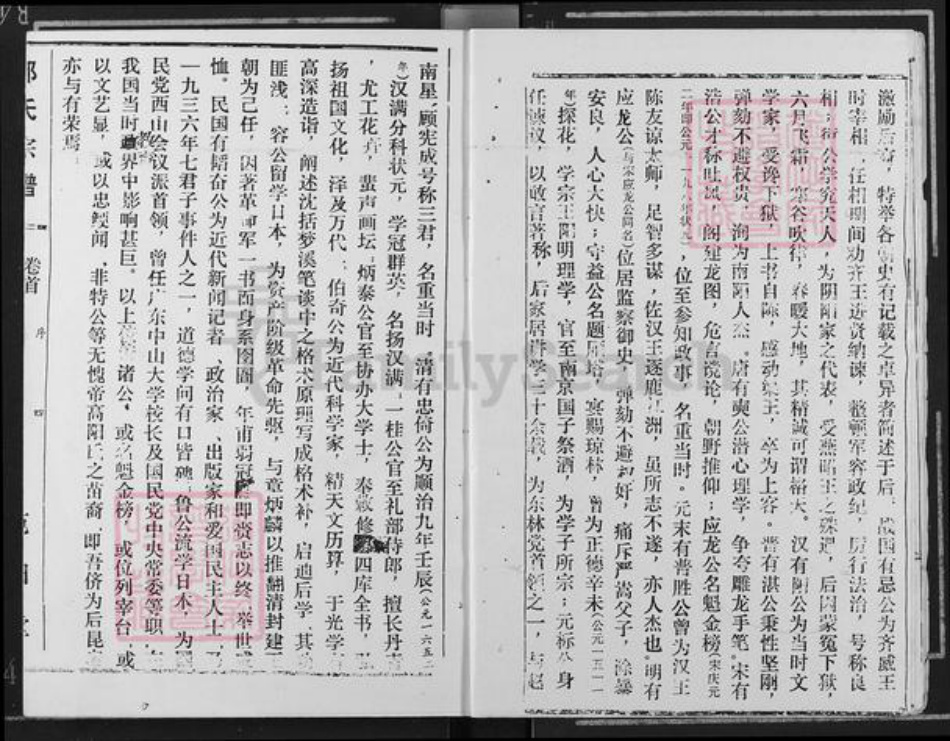 激励后学，特举各朝史有记载之卓异者简述于后。战国有忌公为齐威王
时宰相，任相期间劝齐王进贤纳谏，整顿军容政纪，厉行法治，号称良
相；衍公学究天人，为阴阳家之代表，受燕昭王之殊遇，后因蒙冤下狱，
六月飞霜，寒谷吹律，春暖大地，其精诚可谓格天。汉有阳公为当时文
学家，受谗下狱，上书自陈，感动梁王，卒为上客。晋有湛公秉性坚刚，
弹劾不避权贵，洵为南阳人杰。唐有奭公潜心理学，争夸雕龙手笔。宋有
浩公才称吐凤，阁建龙图，危言谠论，朝野推仰；应龙公名魁金榜（宋庆元
二年即公元一一九六年状元），位至参知政事，名重当时。元末有普胜公曾为汉王
陈友谅太师，足智多谋，佐汉王逐鹿九洲，虽所志不遂，亦人杰也。明有
应龙公（与宋应龙公同名）位居监察御史，弹劾不避权奸，痛斥严嵩父子，除暴
安良，人心大快；守益公名题雁塔，宴赐琼林，曾为正德辛未（公元一五一一
年）探花，学宗王阳明理学，官至南京国子祭酒，为学子所宗；元标公身
任谏议，以敢言著称，后家居讲学三十余载，为东林党首领之一，与赵
南星、顾宪成号称三君，名重当时。清有忠倚公为顺治九年壬辰（公元一六五二
年）汉满分科状元，学冠群英，名扬汉满；一桂公官至礼部侍郎，擅长丹青
，尤工花卉，蜚声画坛；炳泰公官至协办大学士，奉敕修四库全书，弘
扬祖国文化，泽及万代；伯奇公为近代科学家，精天文历算，于光学有
高深造诣，阐述沈括梦溪笔谈中之格术原理写成格术补，启迪后学，其功
匪浅；容公留学日本，为资产阶级革命先驱，与章炳麟以推翻清封建王
朝为己任，因著革命军一书而身系囹圄，年甫弱冠即赍志以终，举世
恤。民国有韬奋公为近代新闻记者、政治家、出版家和爱国民主人士，乃
一九三六年七君子事件人之一，道德学问有口皆碑；鲁公流学日本，为国
民党西山会议派首领，曾任广东中山大学校长及国民党中央常委等职，在
我国当时政界中影响甚巨。以上诸公，或名魁金榜，或位列宰台，或
以文艺显，或以忠绶闻，非特公等无愧帝高阳氏之苗裔，即吾侪为后昆
亦与有荣焉。
邹氏宗谱
卷首
序
四
FamilySearch